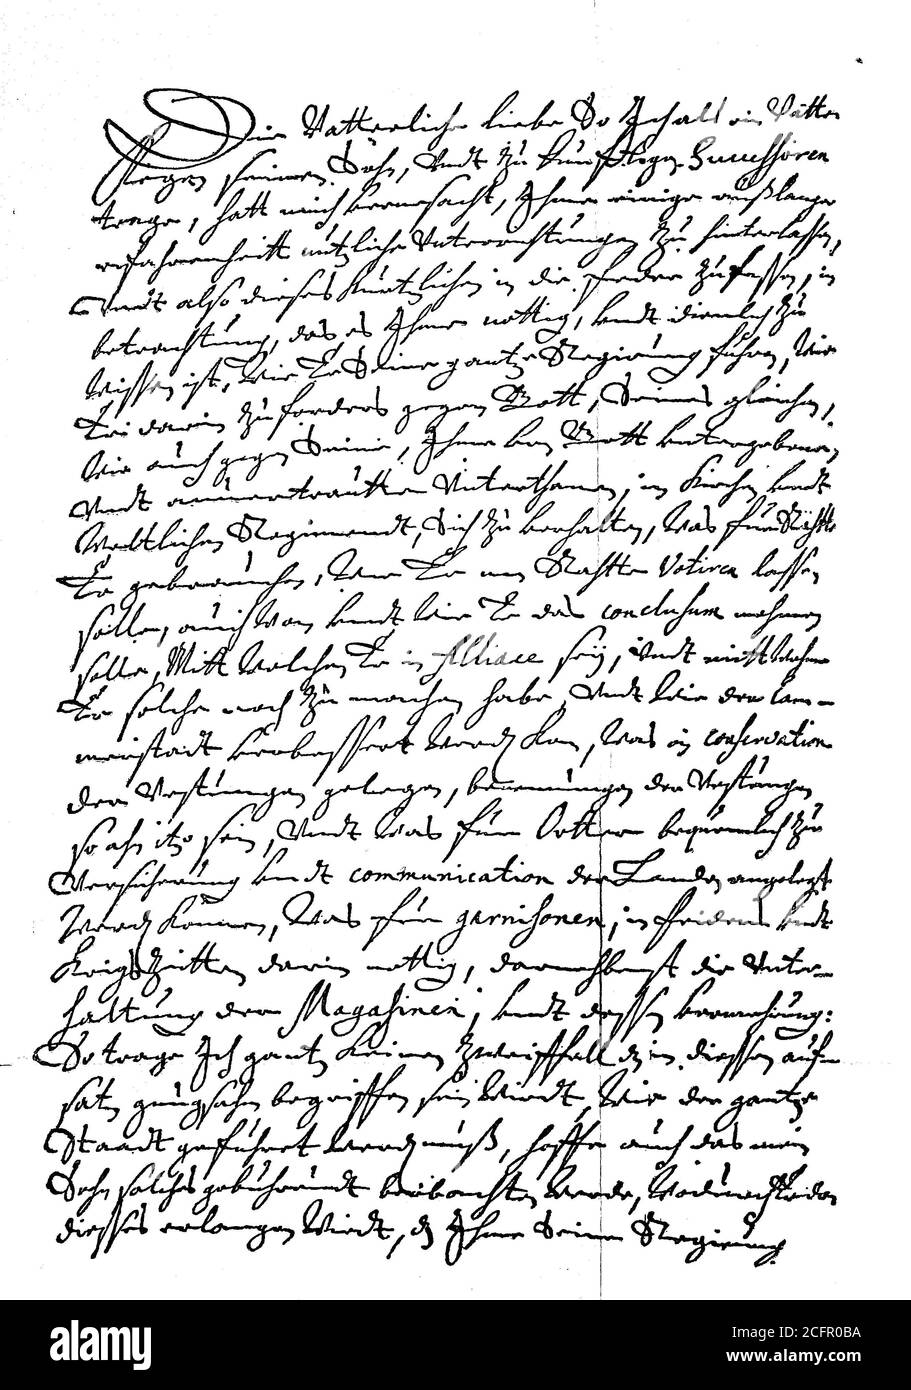 Die Vätterliche liebe So Ich als ein Vatter
kegen seinen Sohn, undt zu künfftigen Successoren
trage, hatt mich verursacht, Ihme einige auß langer
erfahrenheitt nützliche Unterrichtungen zu hinterlassen,
undt also dieses kürtzlichen in die feder zu fassen, in
betrachtung, das es Ihme nöttig, undt dienlich zu
wissen ist, wie Er Seine gantze Regirung führen, wie
Er darin zuforders gegen Gott, Seines gleichen,
wie auch gegen Seine, Ihme von Gott untergebene,
undt anvertrautte Unterthanen, in Kirchen undt
Weltlichen Regimendt, Sich zu verhalten, was für Rähtte
Er gebrauchen, wie Er im Rahtte votiren lassen
solle, auch wan undt wie Er das conclusum nehmen
solle, Mitt welchen Er in Alliace seÿ, undt mitt wehme
Er solche noch zu machen habe, undt wie der Cam-
merstadt verbessert werden kan, was in conservation
der Vestungen gelegen, benennungen der Vestungen
so ahn itzo sein, undt was für Ortter bequemlich zur
Versicherung undt communication der Landen angelegt
werden können, was für garnisonen, in fridens undt
Krigszeitten darin nöttig, darnebenst die Unter-
haltung der Magasinen, undt dessen vermehrung:
So trage Ich gantz keinen zweiffell das in diessen auff-
satz gnugsahm begriffen sein wirdt, wie der gantze
Staadt geführet werden muß, hoffe auch das mein
Sohn solches gebührendt beobachten werde, wodurch Er dan
diesses erlangen wirdt, das Ihme Seine Regirung
alamy
Image ID: 2CFR0BA
www.alamy.com